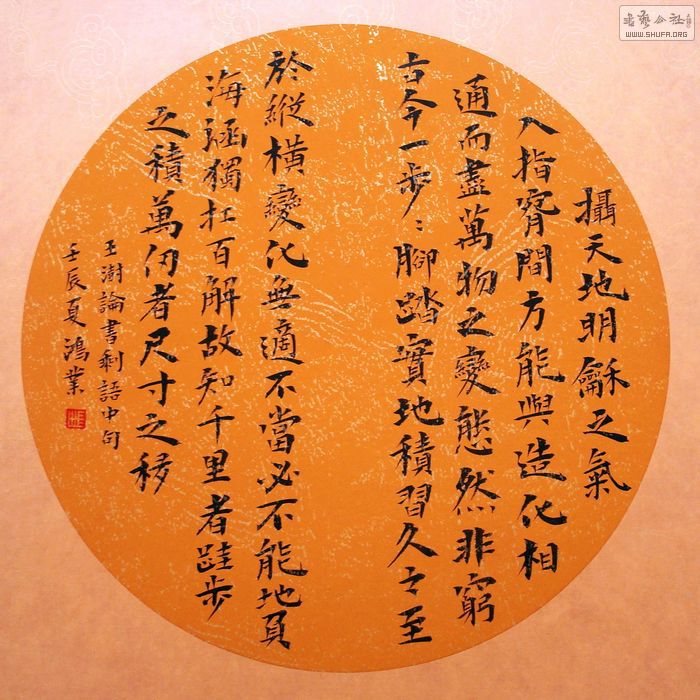 攝天地明龢之氣
入指間方能與造化相
通而盡萬物之變態然非窮
古今一步ミ腳踏實地積習久之至
於縱橫變化無適不當必不能地負
海涵獨扛百解故知千里者跬步
之積萬仞者尺寸之移
王澍論書剩語中句
壬辰夏鴻業
書藝公社
WWW.SHUFA.ORG